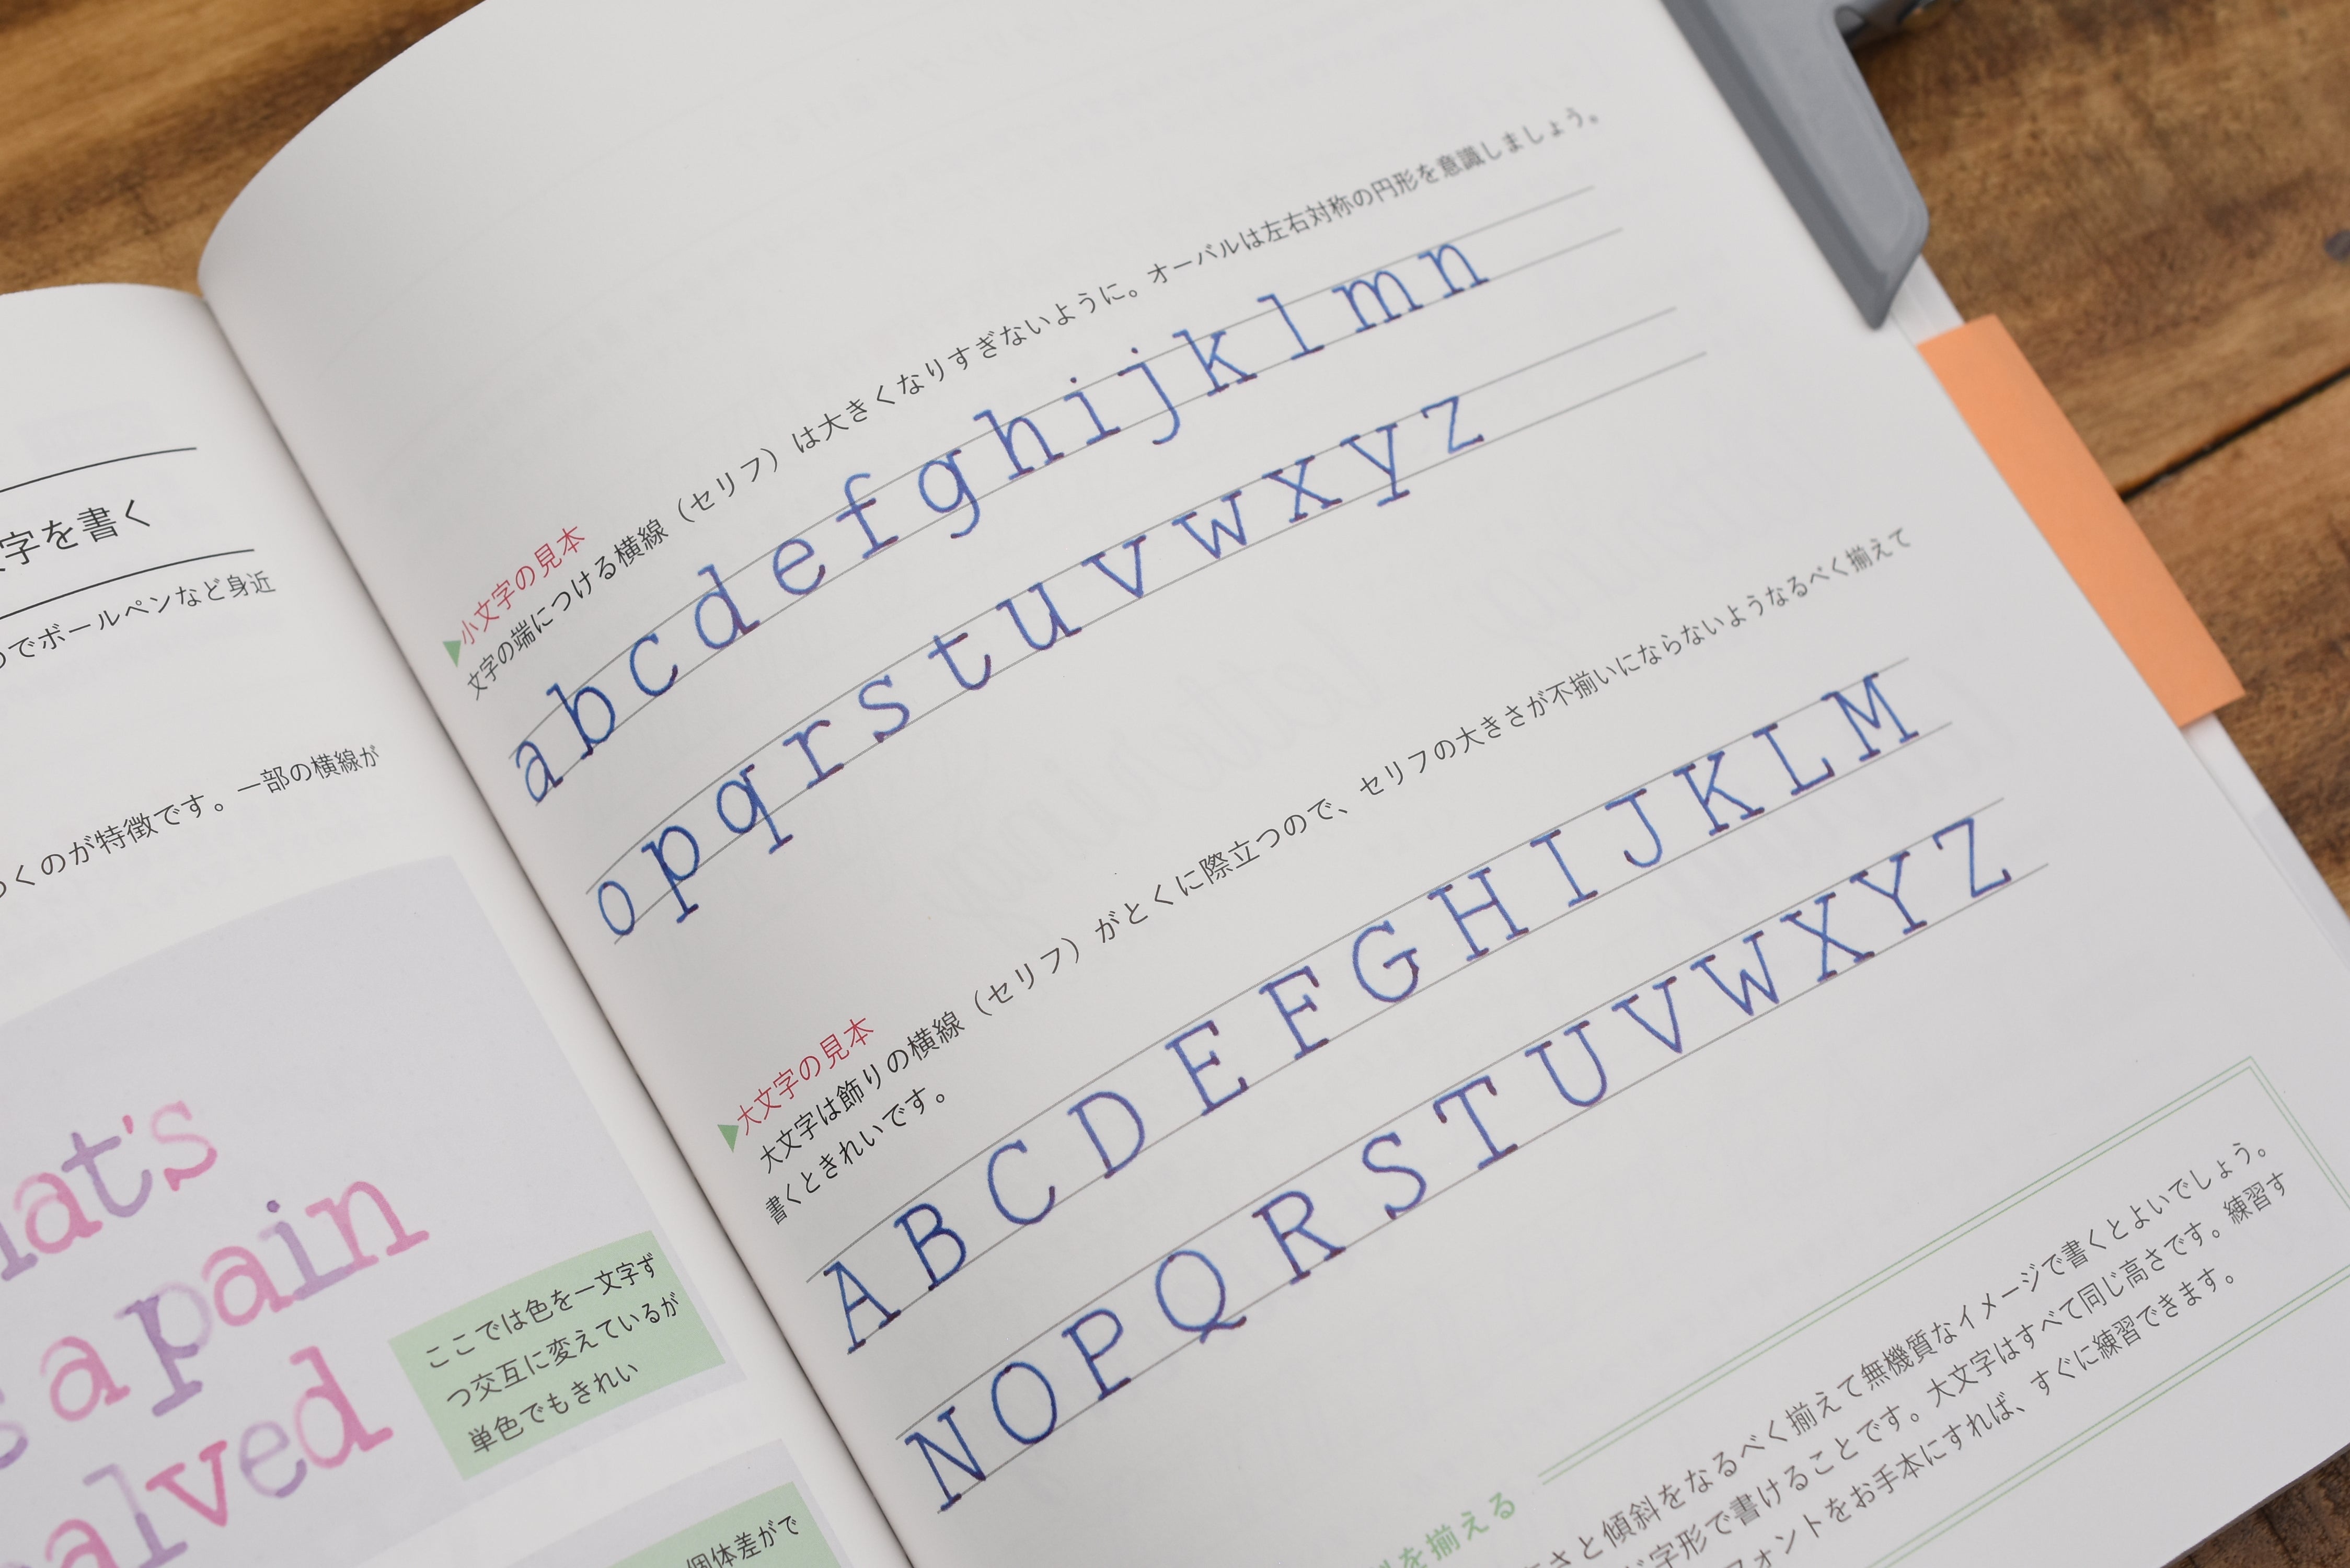 字を書く
でボールペンなど身近
くのが特徴です。一部の横線が
at's
a pain
alved
ここでは色を一文字ず
つ交互に変えているが
単色でもきれい
個体差がで
小文字の見本
文字の端につける横線（セリフ）は大きくなりすぎないように。オーバルは左右対称の円形を意識しましょう。
a b c d e f g h i j k l m n
o p q r s t u v w x y z
大文字の見本
大文字は飾りの横線（セリフ）がとくに際立つので、セリフの大きさが不揃いにならないようなるべく揃えて
書くときれいです。
A B C D E F G H I J K L M
N O P Q R S T U V W X Y Z
を揃える
さと傾斜をなるべく揃えて無機質なイメージで書くとよいでしょう。
字形で書けることです。大文字はすべて同じ高さです。練習す
フォントをお手本にすれば、すぐに練習できます。